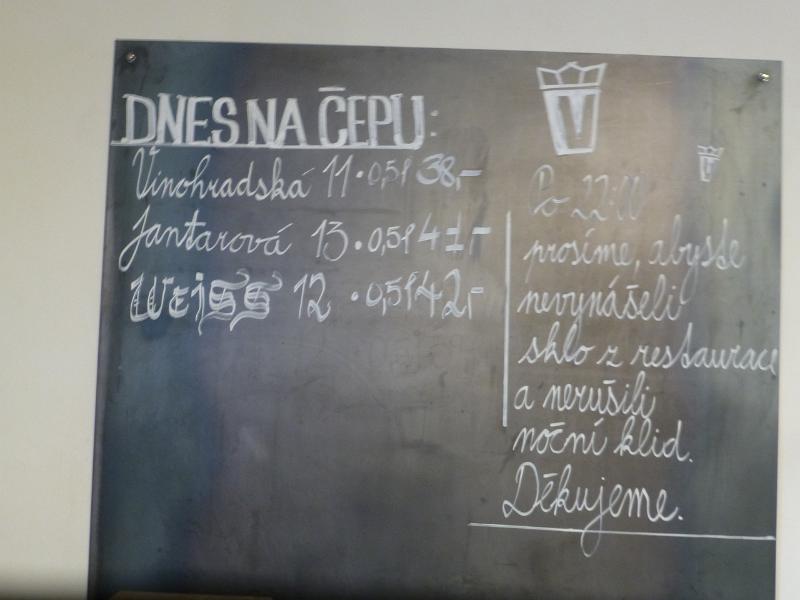 DNES NA ČEPU:
Vinohradská 11 • 0,5l 38,-
Jantarová 13 • 0,5l 41,-
WEISS 12 • 0,5l 42,-
V
V
Po 22:00
prosíme, abyste
nevynášeli
sklo z restaurace
a nerušili
noční klid.
Děkujeme.